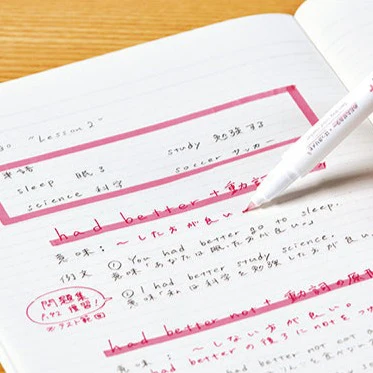 "Lesson 2"
単語 study 勉強する
sleep 眠る soccer サッカー
science 科学
had better + 動詞
意味：〜した方が良い
例文 ① You had better go to sleep.
意味「あなたは眠った方が良い。」
② I had better study science.
意味「私は科学を勉強した方が良い。」
問題集
P.92 復習!
※テスト範囲
had better not + 動詞の原
意味：〜しない方が良い。
had betterの後ろにnotをつ
had better not eat